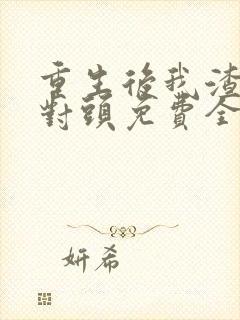 重生後我渣
對頭免費全
妍希